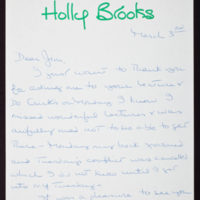 Holly Brooks
March 3rd
Dear Jim,
I just want to thank you
for asking me to your lecture &
Do Lunch on Monday I know I
missed wonderful lectures & was
awfully mad not to be able to get
there - Monday my back spasmed
and Tuesday's weather was
which I did not hear until I got
into my Tuesday.
It was a pleasure to see you